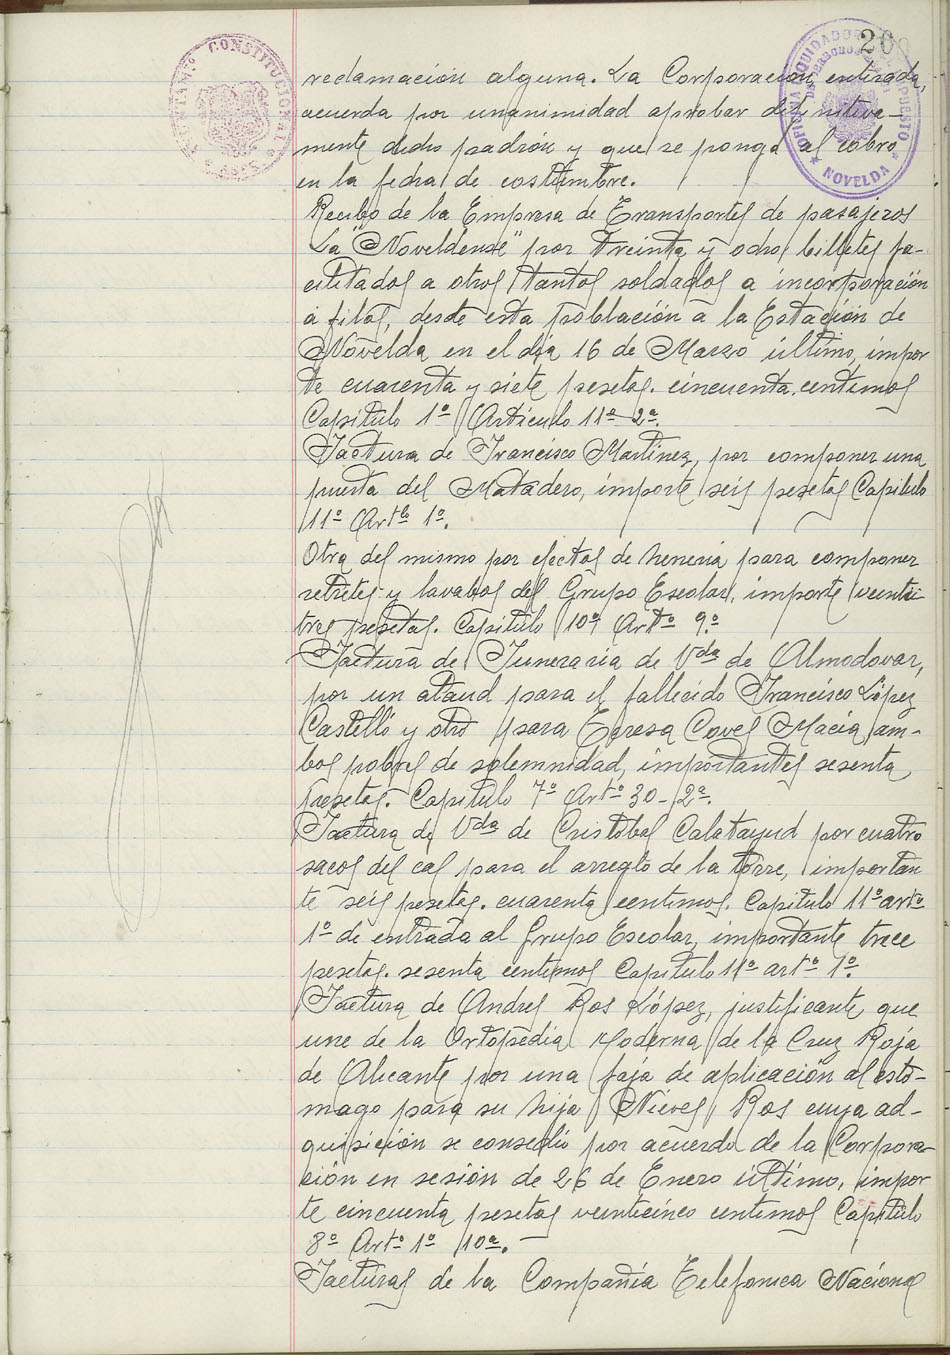 26
AYUNTAM.º CONSTITUCIONAL
OFICINA LIQUIDADORA
DE DERECHOS
IMPUESTO
NOVELDA
reclamación alguna. La Corporación enterada,
acuerda por unanimidad aprobar definitiva-
mente dicho padrón y que se ponga al cobro
en la fecha de costumbre.
Recibo de la Empresa de Transportes de pasajeros
La "Noveldense" por treinta y ocho billetes fa-
cilitados a otros tantos soldados a incorporación
a filas, desde esta población a la Estación de
Novelda en el dia 16 de Marzo último, impor
te cuarenta y siete pesetas. cincuenta. centimos
Capitulo 1º Articulo 11º 2ª.
Factura de Francisco Martinez, por componer una
puerta del Matadero, importe seis pesetas Capitulo
11º Artº 1º.
Otra del mismo por efectos de para componer
retretes y lavabos del Grupo Escolar, importe veinti-
tres pesetas. Capitulo 10º Artº 9º
Factura de Funeraria de Vda de Almodovar,
por un ataud para el fallecido Francisco López
Castelló y otro para Teresa Covel Maciá am-
bos pobres de solemnidad, importantes sesenta
pesetas. Capitulo 7º Artº 30-2ª.
Factura de Vda de Cristobal Calatayud por cuatro
sacos del cal para el arreglo de la torre, importan
te seis pesetas. cuarenta centimos. Capitulo 11º artº
1º de entrada al Grupo Escolar, importante trece
pesetas. sesenta centimos Capitulo 11º artº 1º.
Factura de Andres Ros López, justificante que
une de la Ortopedia Moderna de la Cruz Roja
de Alicante por una faja de aplicación al estó-
mago para su hija Nieves Ros cuya ad-
quisición se consedió por acuerdo de la Corpora-
ción en sesión de 26 de Enero último, impor
te cincuenta pesetas veinticinco centimos Capitulo
8º Artº 1º 10ª.-
Facturas de la Compañia Telefonica Nacional